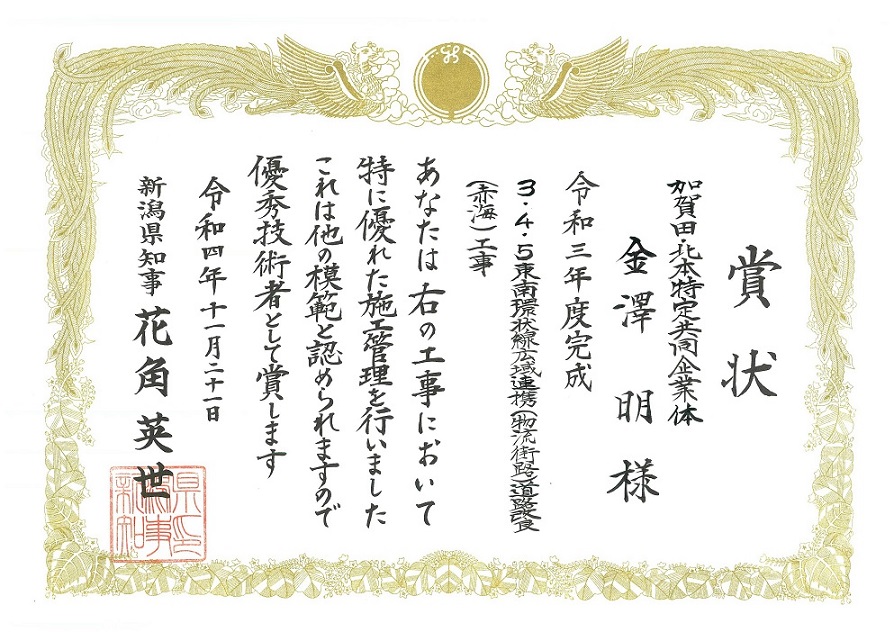 賞状
加賀田・北本特定共同企業体
金澤明様
令和三年度完成
3・4・5東南環状線広域連携(物流街路)道路改良
(赤海)工事
あなたは右の工事において
特に優れた施工管理を行いました
これは他の模範と認められますので
優秀技術者として賞します
令和四年十一月二十一日
新潟県知事 花角英世
新潟県知事印